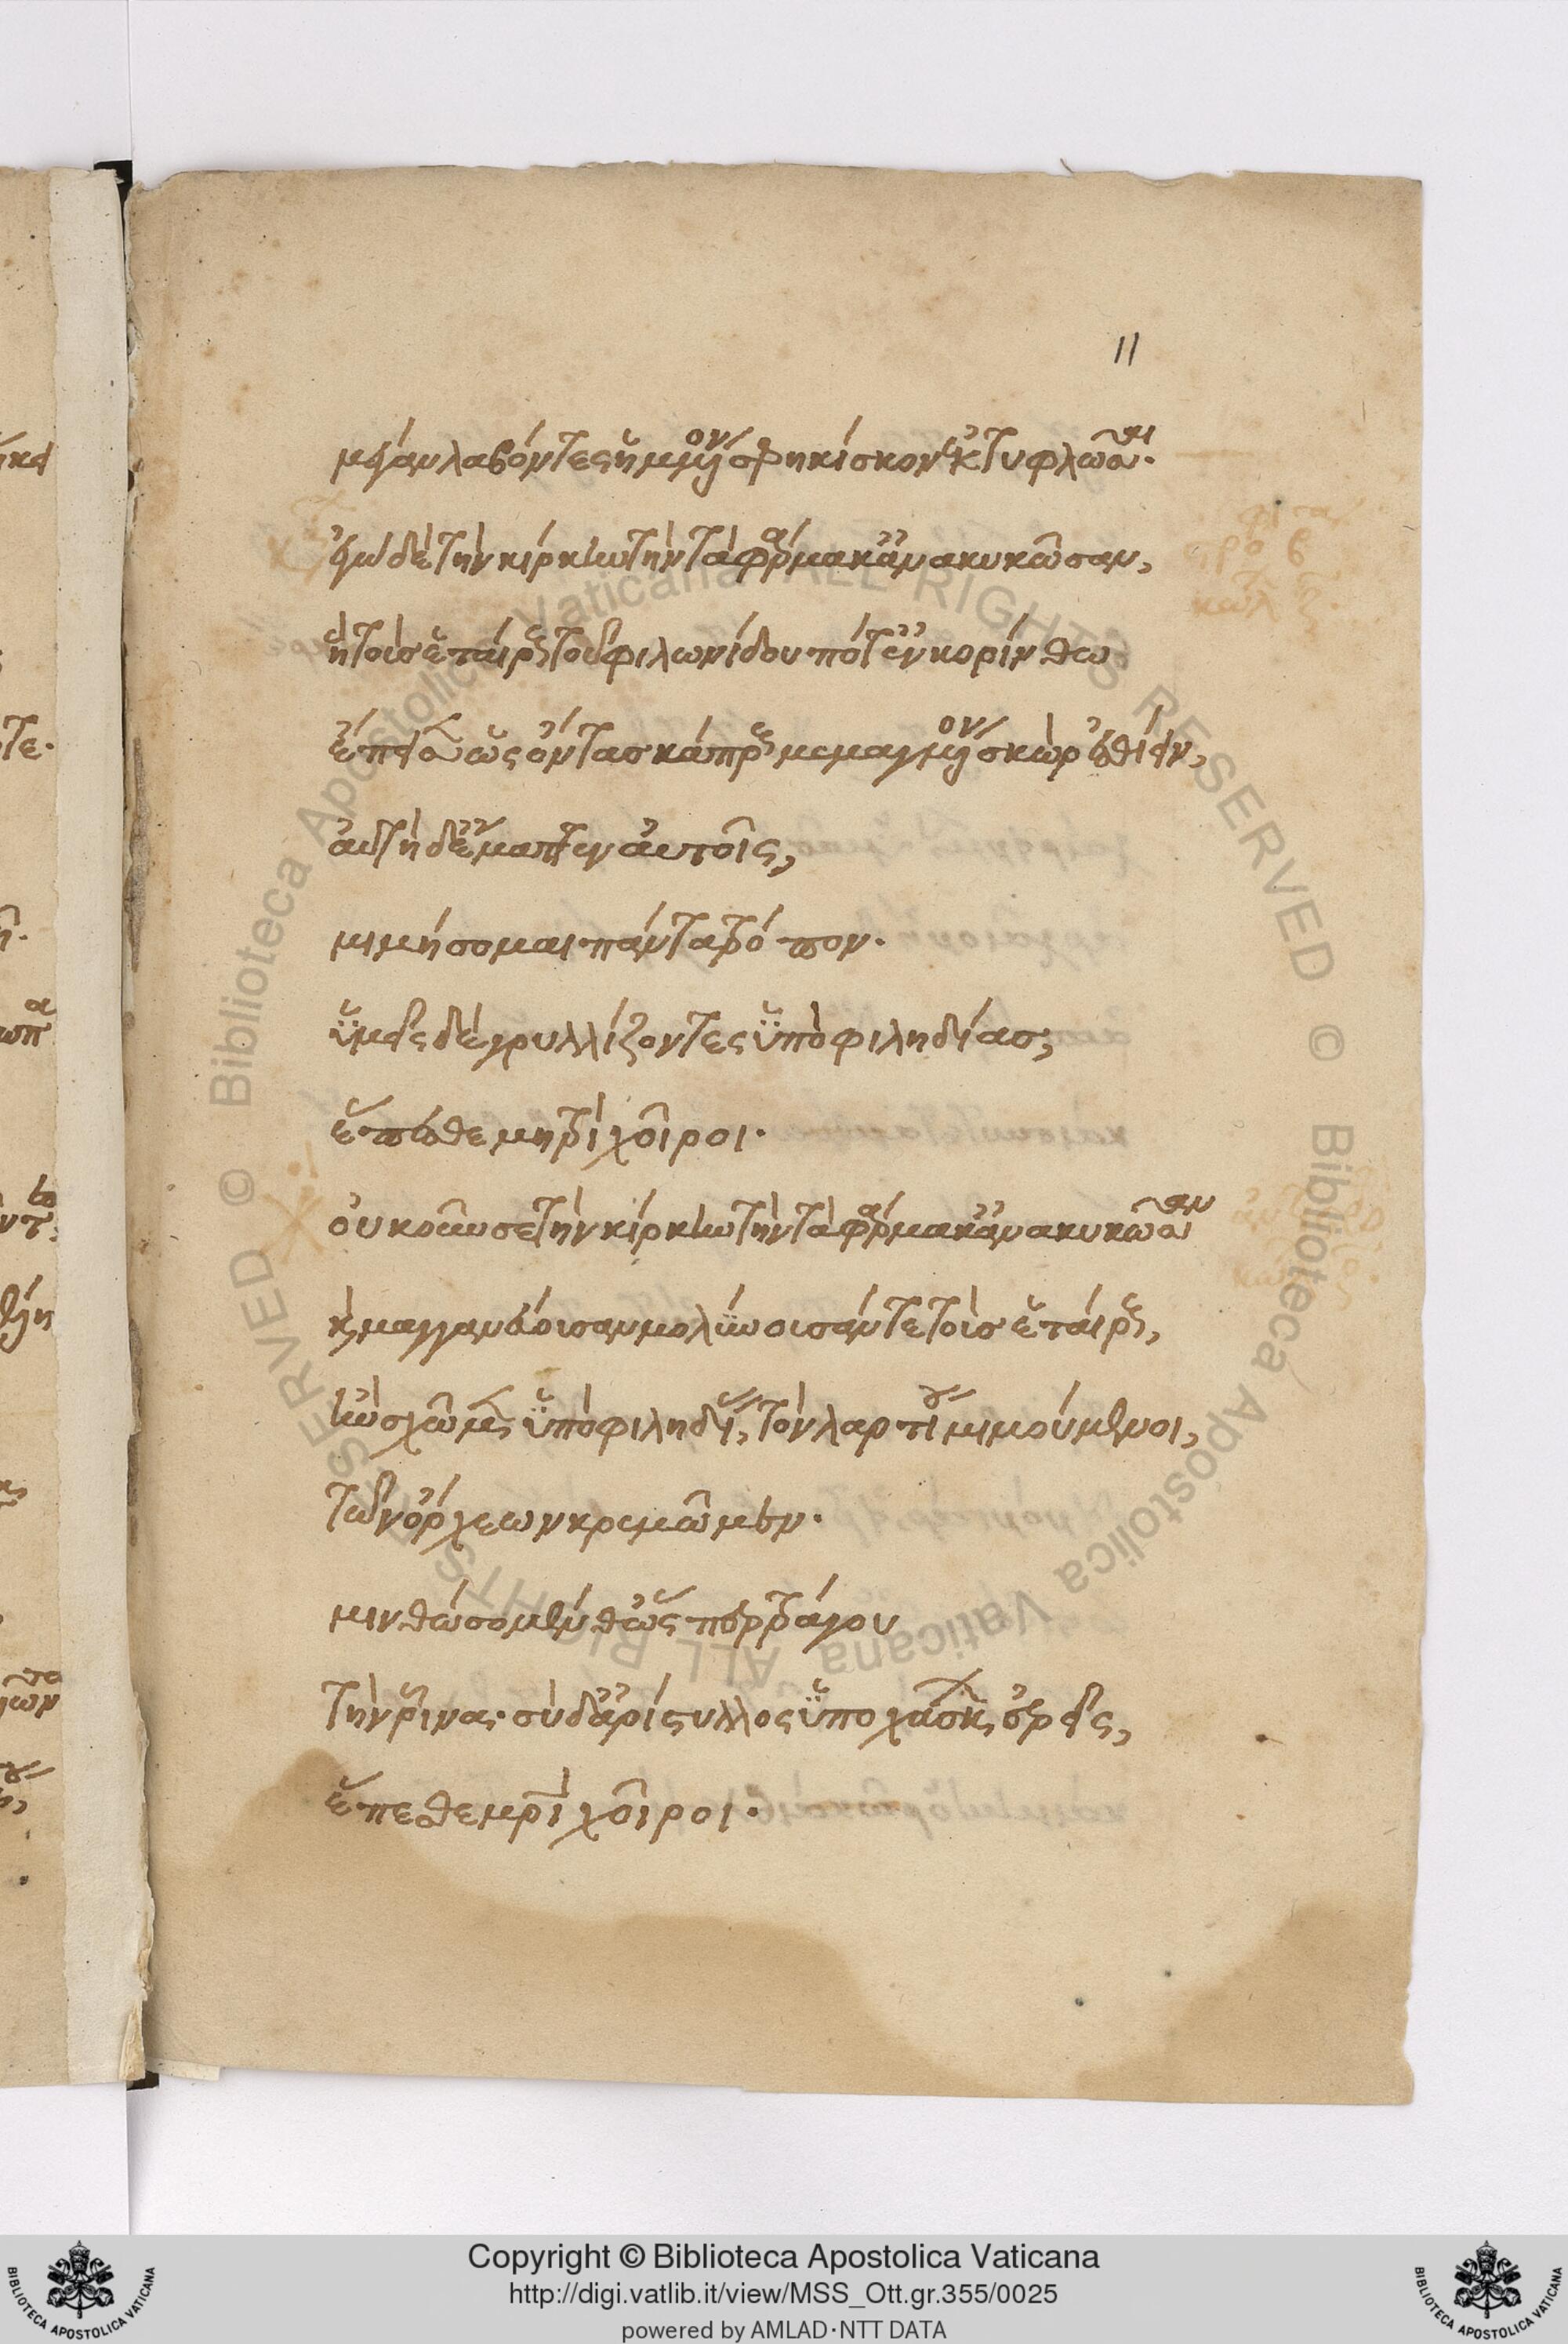 11
μέγαν λαβόντες ἡμμένον σφηκίσκον ἐκτυφλῶσαι.
ἐγὼ δὲ τὴν κίρκην τὴν τὰ φάρμακ' ἀνακυκῶσαν,
ἣ τοὺς ἑταίρους τοῦ φιλωνίδου πότ' ἐν κορίνθω
ἔπεισεν ὡς ὄντας κάπρους μεμαγμένον σκῶρ ἐσθίειν,
αὐτὴ δ' ἔματτεν αὐτοῖς,
μιμήσομαι πάντα τρόπον.
ὑμεῖς δὲ γρυλλίζοντες ὑπὸ φιληδίας,
ἕπεσθε μητρὶ χοῖροι.
οὐκοῦν σε τὴν κίρκην τὴν τὰ φάρμακ' ἀνακυκῶσαν
καὶ μαγγανεύουσαν μολύνουσάν τε τοὺς ἑταίρους,
λαβόντες ὑπὸ φιληδίας, τὸν λαρτίου μιμούμενοι,
τῶν ὄρχεων κρεμῶμεν.
μινθώσομέν θ' ὥσπερ τράγου
τὴν ῥῖνα· σὺ δ' ἀρίστυλλος ὑποχάσκων ἐρεῖς,
ἕπεσθε μητρὶ χοῖροι.
© Biblioteca Apostolica Vaticana ALL RIGHTS RESERVED © Biblioteca Apostolica Vaticana ALL RIGHTS RESERVED
BIBLIOTECA APOSTOLICA VATICANA
Copyright © Biblioteca Apostolica Vaticana
http://digi.vatlib.it/view/MSS_Ott.gr.355/0025
powered by AMLAD·NTT DATA
BIBLIOTECA APOSTOLICA VATICANA